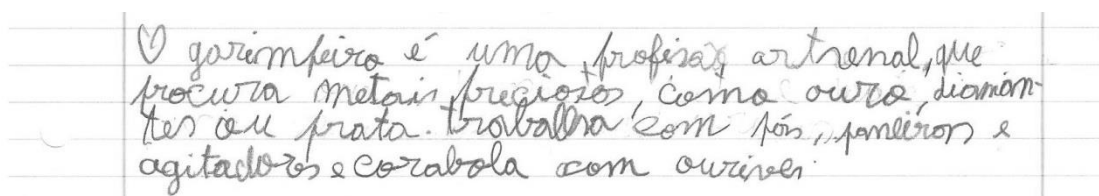 O garimpeiro é uma profisão artesenal, que
procura metais preciosos, como ouro, diaman-
tes ou prata. trabalha com pás, paneiros e
agitadores e corabola com ourives.